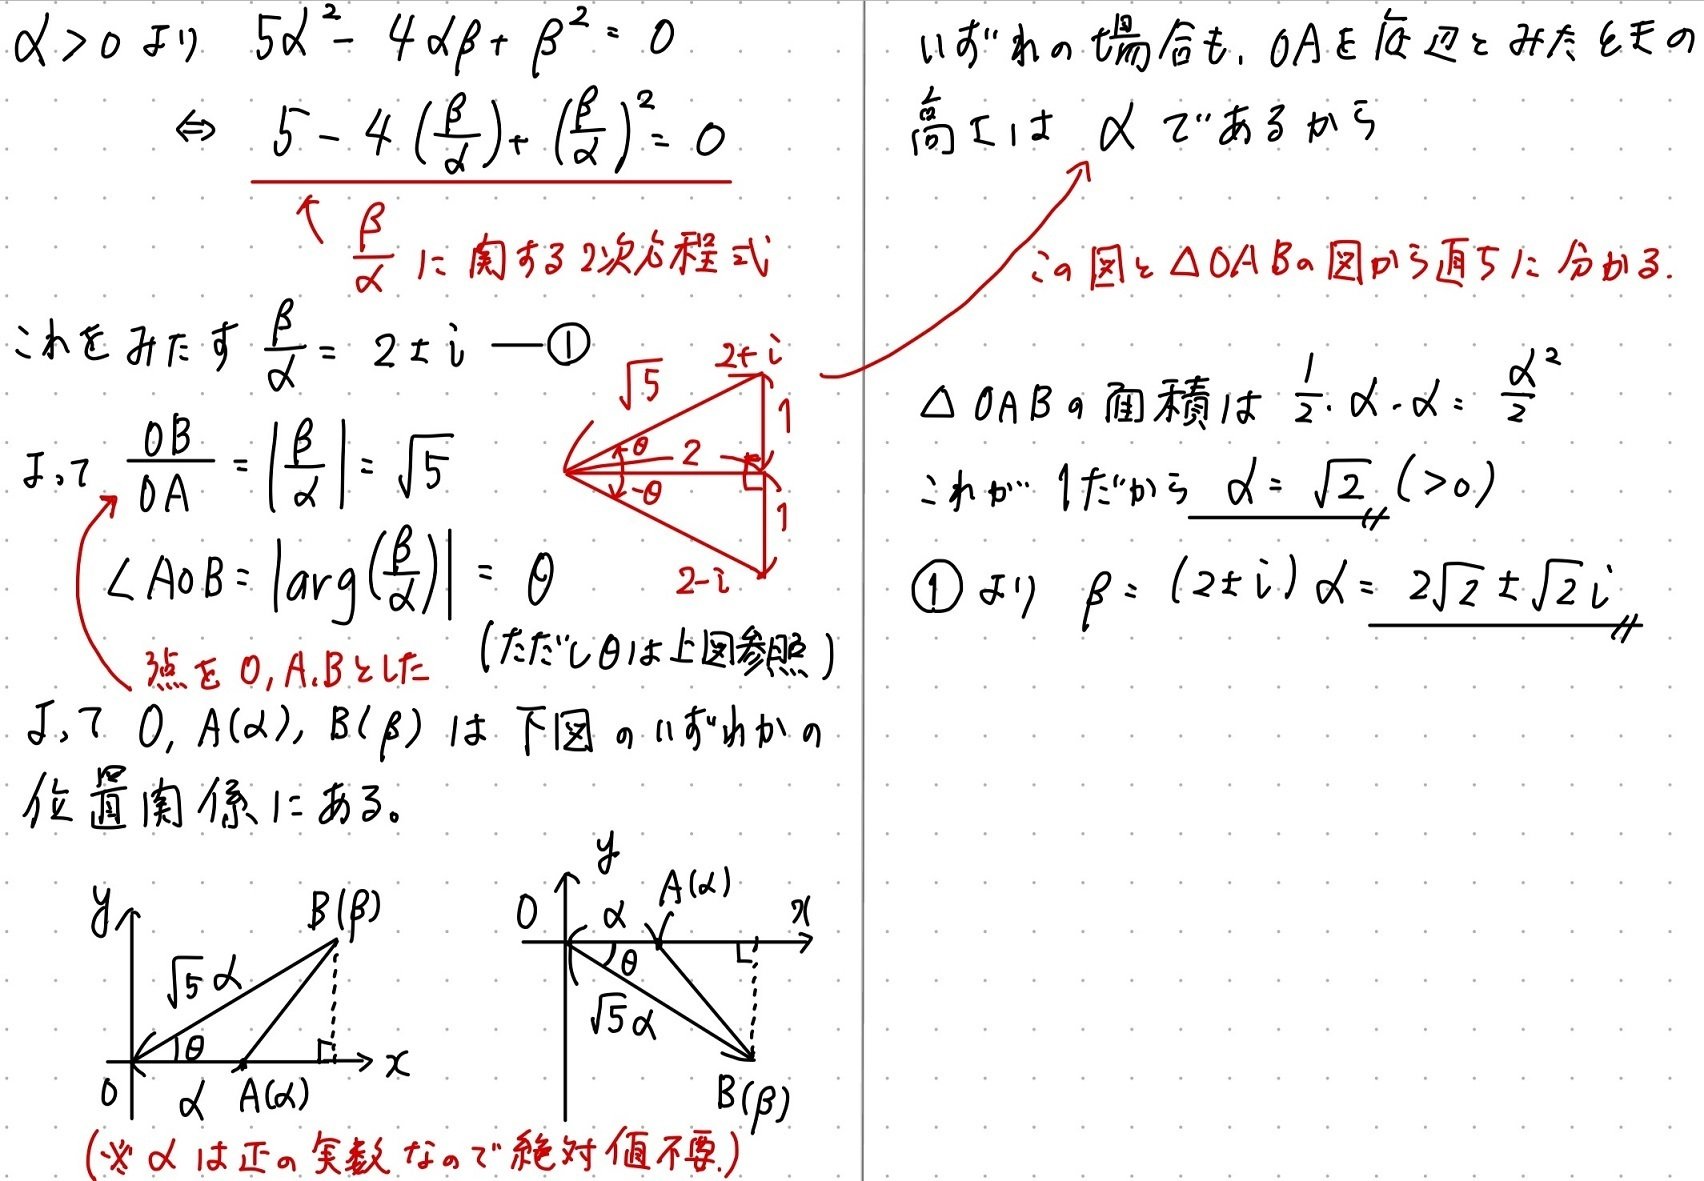 α>0 より 5α² - 4αβ + β² = 0
⇔ 5 - 4(β/α) + (β/α)² = 0
β/α に関する2次方程式
これをみたす β/α = 2±i ―①
よって OB/OA = |β/α| = √5
∠AOB = |arg(β/α)| = θ
(ただしθは上図参照)
3点を O, A, B とした
√5
2+i
1
θ
2
-θ
1
2-i
よって O, A(α), B(β) は下図のいずれかの
位置関係にある。
y
B(β)
√5α
θ
O
α
A(α)
x
y
O
α
A(α)
x
θ
√5α
B(β)
(※αは正の実数なので絶対値不要)
いずれの場合も, OAを底辺とみたときの
高さは α であるから
この図と△OABの図から直ちに分かる.
△OABの面積は 1/2・α・α = α²/2
これが 1だから α = √2 (>0)
①より β = (2±i)α = 2√2 ± √2 i